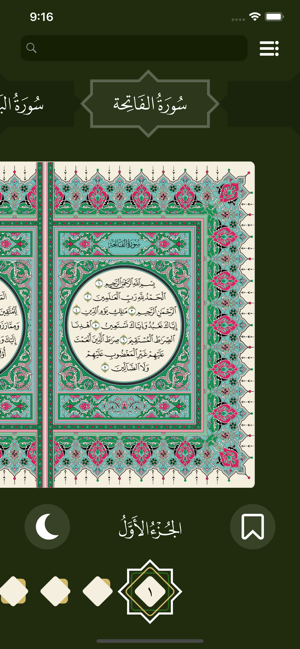 9:16
سُورَةُ الفَاتِحة
سُورَةُ الب
سُورَةُ الفَاتِحَةِ
بِسْمِ ٱللَّهِ ٱلرَّحْمَٰنِ ٱلرَّحِيمِ ١
ٱلْحَمْدُ لِلَّهِ رَبِّ ٱلْعَٰلَمِينَ ٢
ٱلرَّحْمَٰنِ ٱلرَّحِيمِ ٣ مَٰلِكِ يَوْمِ ٱلدِّينِ ٤
إِيَّاكَ نَعْبُدُ وَإِيَّاكَ نَسْتَعِينُ ٥ ٱهْدِنَا
ٱلصِّرَٰطَ ٱلْمُسْتَقِيمَ ٦ صِرَٰطَ ٱلَّذِينَ أَنْعَمْتَ
عَلَيْهِمْ غَيْرِ ٱلْمَغْضُوبِ عَلَيْهِمْ
وَلَا ٱلضَّآلِّينَ ٧
الجُزْءُ الأَوَّلُ
١